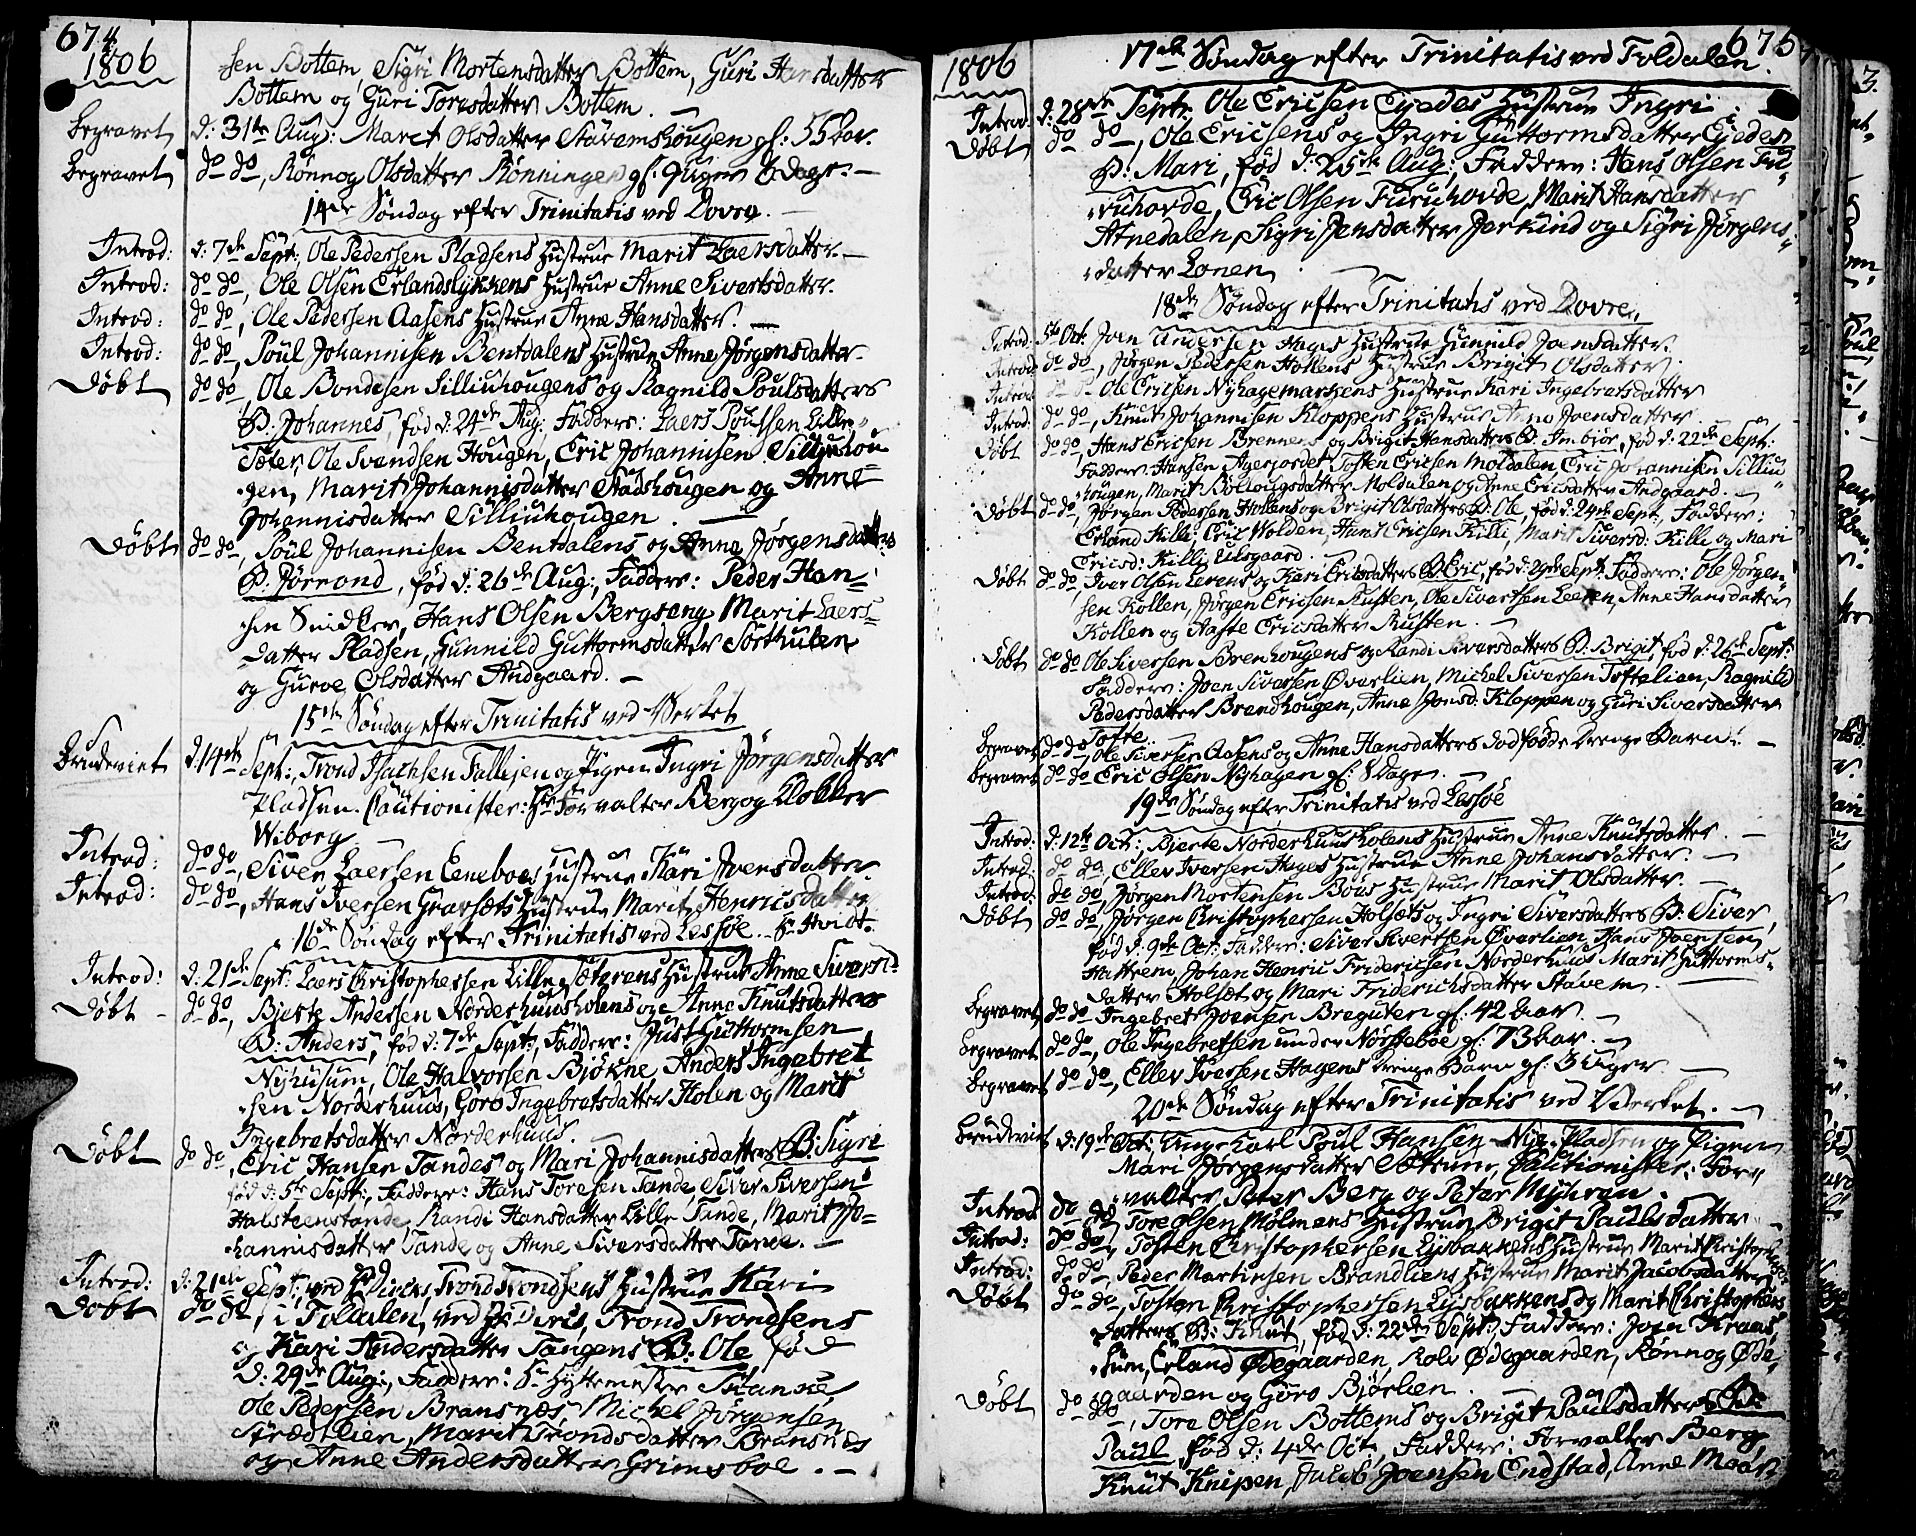 674
1806
sen Bottem, Sigri Mortensdatter Bottem, Guri Hansdatter
Bottem og Guri Toresdatter Bottem. —
Begravet d: 31te Aug: Maret Olsdatter Stavemshougen gl: 55 Aar.
Begravet do do, Rønnog Olsdatter Rønningen gl: 6 dage. —
14de Søndag efter Trinitatis ved Dovre. —
Introd: d: 7de Sept: Ole Pedersen Pladsens Hustrue Marit Laersdatter. —
Introd: do do, Ole Olsen Erlandslykkens Hustrue Anne Sivertsdatter.
Introd: do do, Ole Pedersen Aasens Hustrue Anne Hansdatter. —
Introd: do do, Poul Johannisen Bentdalens Hustrue Anne Jørgensdatter
Døbt do do, Ole Bondesen Silliuhougens og Ragnild Poulsdatters
B: Johannes, fød d: 24de Aug: Faddere: Laers Poulsen Lille
Sæter, Ole Svendsen Hougen, Eric Johannisen Silliuhou
gen, Marit Johannisdatter Stadshougen og Anne
Johannisdatter Silliuhougen. —
Døbt do do, Poul Johannisen Bentdalens og Anne Jørgensdatters
B: Jørrond, fød d: 26de Aug:, Faddere: Peder Han-
sen Snidker, Hans Olsen Bergseng, Marit Laers-
datter Pladsen, Gunnild Guttormsdatter Sorthulen
og Gurve Olsdatter Andgaard. —
15de Søndag efter Trinitatis ved Verket
Brudeviet d: 14de Sept:, Trond Isachsen Fallesen og Pigen Ingri Jørgensdatter
Pladsen. Cautionister: Hr Forvalter Berg og Klokker
Wiborg
Introd: do do, Siver Laersen Eeneboes Hustrue Kari Ivensdatter
Introd: do do, Hans Iversen Gravsets Hustrue Marit Henricsdatter
16de Søndag efter Trinitatis ved Lessøe. Hr Hvidt.
Introd: d: 21de Sept: Laers Christophersen Lille Sæterens Hustrue Anne Siversd:
Døbt do do, Bjerte Andersen Norderhuusholens og Anne Knutsdatters
B: Anders, fød d: 7de Sept:, Faddere: Just Guttormsen
Nyhusum, Ole Halvorsen Bjøkne, Anders Ingebret
sen Norderhuus, Goro Ingebretsdatter Holen og Marit
Ingebretsdatter Norderhuus.
Døbt do do, Eric Hansen Tandes og Mari Johannisdatters B: Sigri
fød d: 5te Sept:, Faddere: Hans Toresen Tande, Siver Siversen
Halsteenstande, Randi Hansdatter Lille Tande, Marit Jo-
hannisdatter Tande og Anne Siversdatter Tande. —
Introd: d: 21de Sept: ved Trond Trondsens Hustrue Kari
Døbt do do, i Foldalen, ved Trond Trondsens
og Kari Andersdatter Tangens B: Ole, fød
d: 29de Aug:, Faddere: Hr Hyttemester
Ole Pedersen Bransnes, Michel Jørgensen
Strædtlien, Marit Trondsdatter Bransnes
og Anne Andersdatter Grimsboe. —
675
1806
17de Søndag efter Trinitatis ved Foldalen.
Introd: d: 28de Sept: Ole Ericsen Egedes Hustrue Ingri.
Døbt do do, Ole Ericsens og Ingri Guttormsdatter Egedes
B: Mari, fød d: 25de Aug:, Faddere: Hans Olsen Fu-
ruhovde, Eric Olsen Furuhovde, Marit Hansdatter
Atnedalen, Sigri Jensdatter Jerkind og Sigri Jørgens-
datter Lonen
18de Søndag efter Trinitatis ved Dovre.
Introd: 5te Oct. Joen Andersen Hages Hustrue Gunnild Joensdatter.
Introd: do do, Jørgen Pedersen Hollens Hustrue Brigit Olsdatter
Introd: do do, Ole Ericsen Nyhagemarkens Hustrue Kari Ingebretsdatter
Introd: do do, Knut Johannisen Kloppens Hustrue Anne Joensdatter
Døbt do do, Hans Ericsen Brennens og Brigit Hansdatters B: Imbiør, fød d: 22de Sept:
Faddere: Hansen Agerjordet, Tosten Ericsen Moldalen, Eric Johannisen Silliu
hougen, Marit Botlougsdatter Moldalen og Anne Ericsdatter Andgaard. —
Døbt do do, Jørgen Pedersen Holens og Brigit Olsdatters B: Ole, fød d: 24de Sept:, Faddere:
Erland Killi, Eric Wolden, Hans Ericsen Killi, Marit Siversd: Killi og Mari
Ericsd: Killi, Luusgaard.
Døbt do do, Iver Olsen Leerens og Kari Ericsdatters B: Eric, fød d: 29de Sept:, Faddere: Ole Jørgen
sen Kollen, Jørgen Ericsen Rusten, Ole Sivertsen Leeren, Anne Hansdatter
Kollen og Aaste Ericsdatter Rusten. —
Døbt do do Ole Siversen Brenhougens og Randi Siversdatters B: Brigit, fød d: 26de Sept:
Faddere: Joen Siversen Øverlien, Michel Siversen Toftelien, Ragnild
Pedersdatter Brendhougen, Anne Jonsd: Kloppen og Guri Siversdatter
Tofte.
Begravet do do, Ole Siversen Aasens og Anne Hansdatters dødfødde Drenge Barn. —
Begravet do do Eric Olsen Nyhagen gl: 8 Dage. —
19de Søndag efter Trinitatis ved Lessøe
Introd: d: 12te Oct:, Bjerte Norderhuusholens Hustrue Anne Knutsdatter. —
Introd: do do, Ellev Iversen Hages Hustrue Anne Johansdatter. —
Introd: do do, Jørgen Mortensen Bøus Hustrue Marit Olsdatter. —
Døbt do do, Jørgen Christophersen Holsets og Ingri Siversdatters B: Siver,
fød d: 9de Oct: Faddere: Siver Sivertsen Øverlien, Hans Joensen
Hattrem, Johan Henric Friderichsen Norderhuus, Marit Guttorms-
datter Holset og Mari Friderichsdatter Stavem. —
Begravet do do Ingebret Joensen Breguten gl: 42 Aar. —
Begravet do do, Ole Ingebretsen under Nørsteboe gl: 73 Aar. —
Begravet do do, Ellev Iversen Hagens Drenge Barn gl: 3 Uger. —
20de Søndag efter Trinitatis ved Verket. —
Brudeviet d: 19de Oct: Unge Karl Poul Hansen Nye-Pladsen og Pigen
Mari Jørgensdatter Cautionister: For-
valter Peter Berg og Peter Myhren.
Introd: do do Tore Olsen Mølmens Hustrue Brigit Paulsdatter
Introd: do do, Tosten Christophersen Lysbakkens Hustrue Marit Christophersd:
Introd: do do, Peder Martinsen Brandliens Hustrue Marit Jacobsdatter
Døbt do do, Tosten Christophersen Lysbakkens og Marit Christophers
datters B: Knut, fød d: 22de Sept:, Faddere: Joen Kraas-
Erland Ødegaarden, Rolv Ødegaarden, Rønnog Øde-
gaarden og Goro Bjørlien. —
Døbt do do, Tore Olsen Bottems og Brigit Paulsdatters B:
Paul fød d: 4de Oct:, Faddere: Forvalter Berg,
Knut Knipen, Jacob Joensen Endstad, Anne